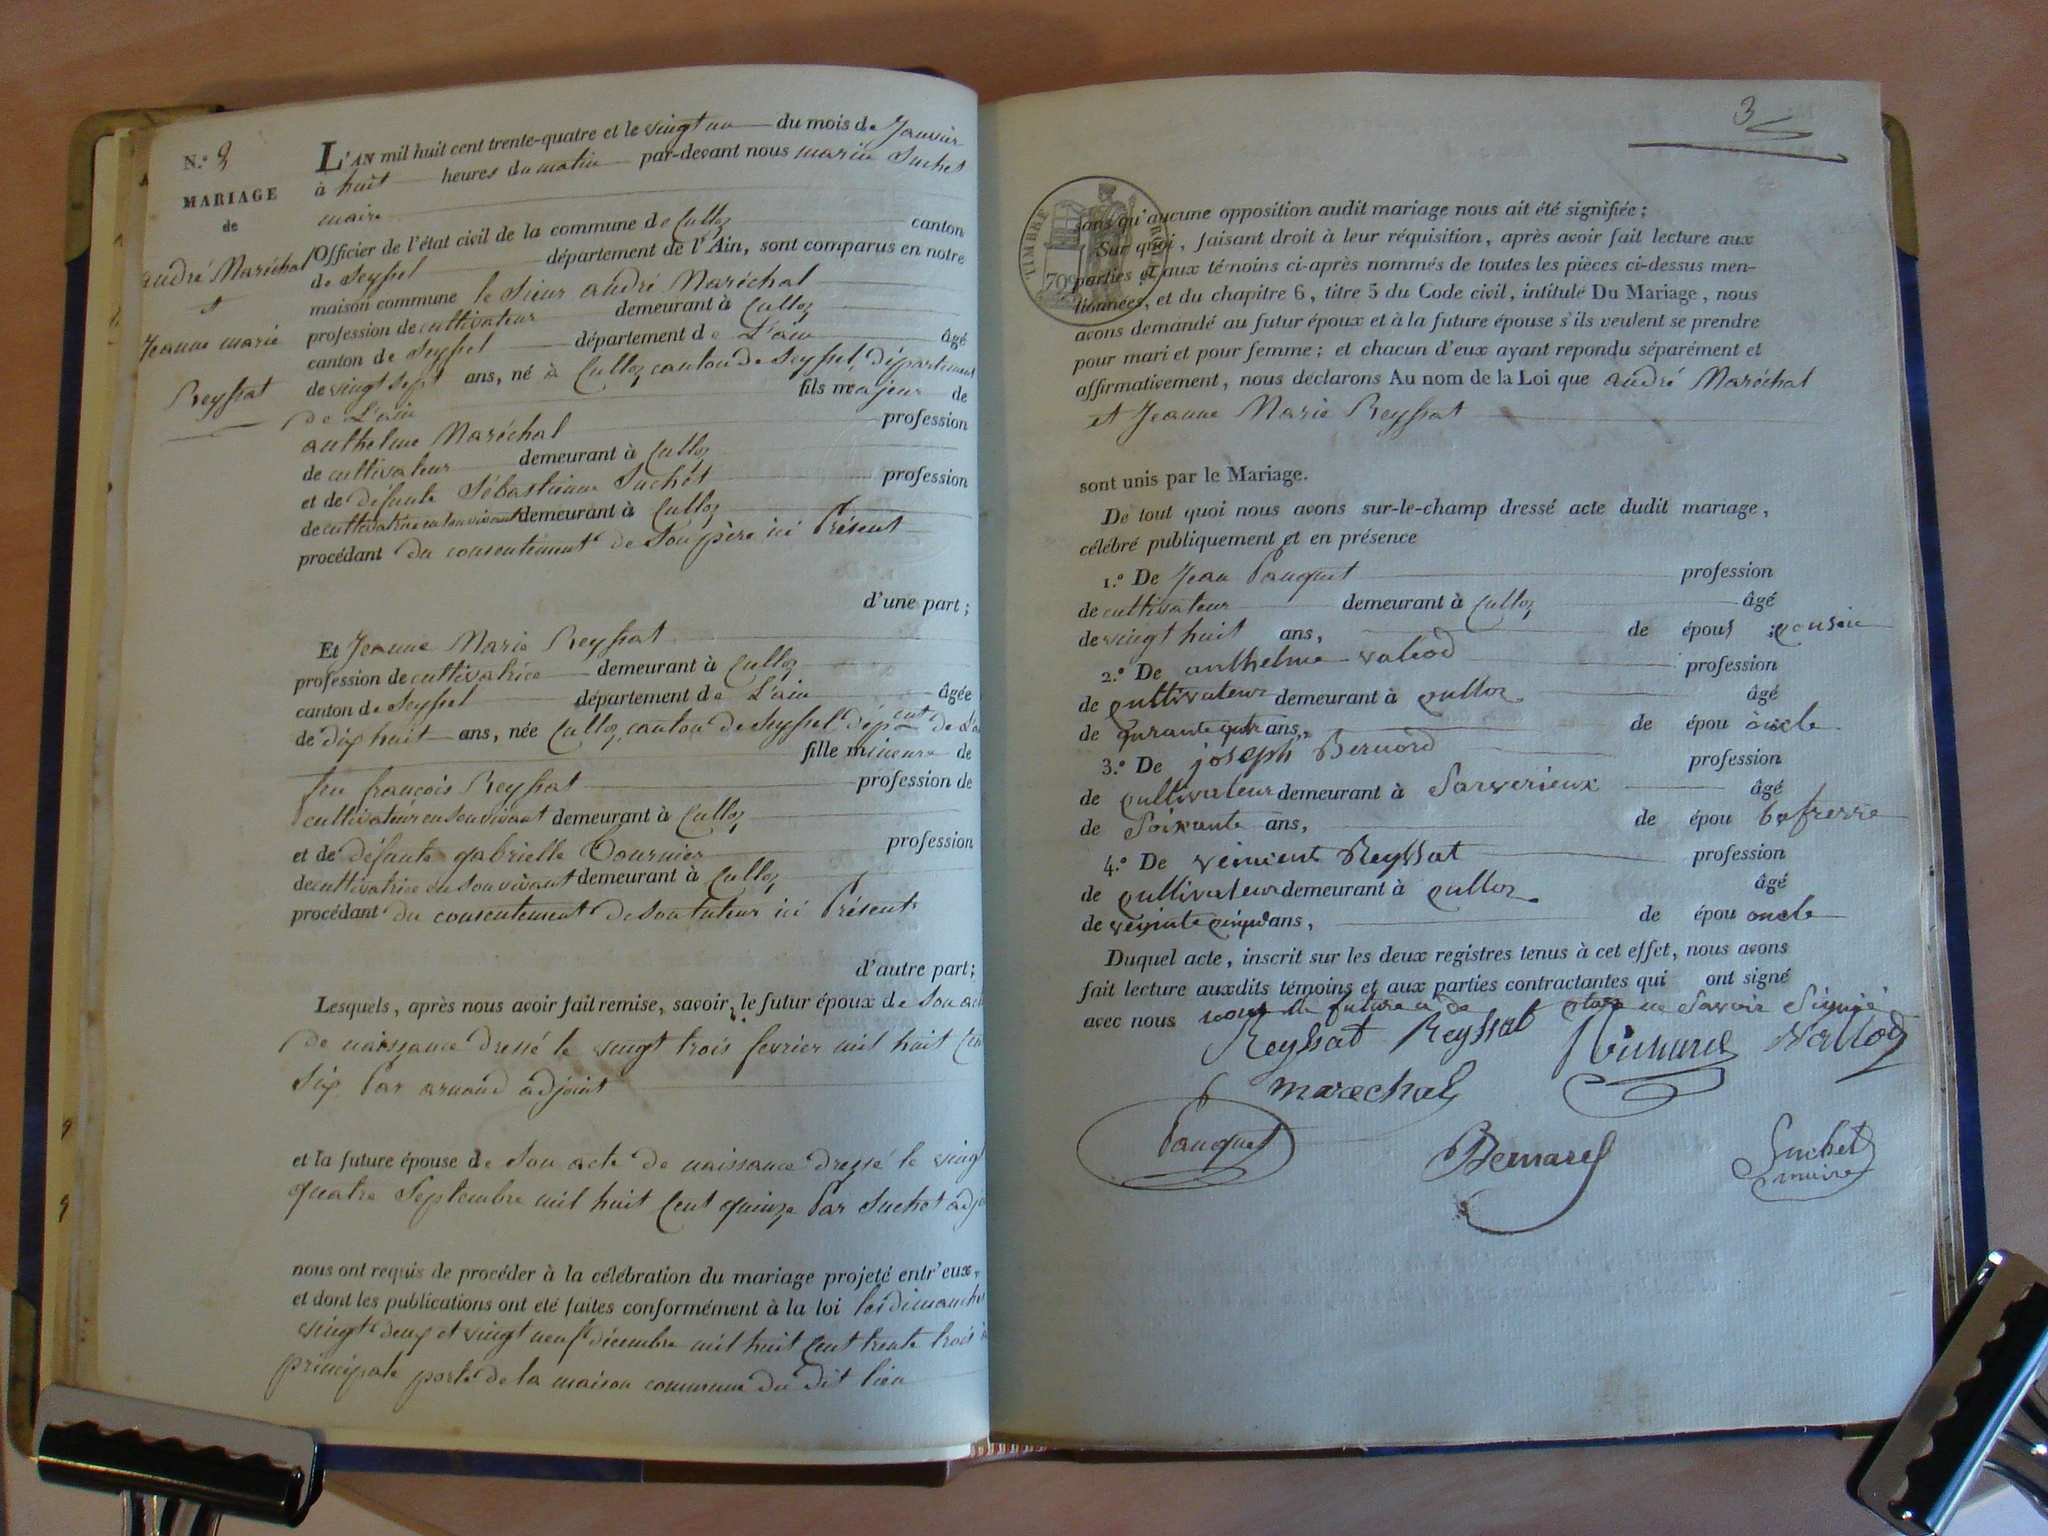 N.° 2
MARIAGE
de
andré Maréchal
et
Jeanne marie
Reyssat
L'AN mil huit cent trente-quatre et le vingt un du mois de Janvier
à huit heures du matin par-devant nous marin Suchet
maire
Officier de l'état civil de la commune de Culloz canton
de Seyssel département de l'Ain, sont comparus en notre
maison commune le Sieur andré Maréchal
profession de cultivateur demeurant à Culloz
canton de Seyssel département de L'ain âgé
de vingt sept ans, né à Culloz canton de Seyssel, département
de L'ain fils majeur de
anthelme Maréchal profession
de cultivateur demeurant à Culloz
et de défunte Sébastienne Suchet profession
de cultivatrice en son vivant demeurant à Culloz
procédant du consentement de Son père ici Présent
d'une part;
Et Jeanne Marie Reyssat
profession de cultivatrice demeurant à Culloz
canton de Seyssel département de L'ain âgée
de dix huit ans, née Culloz, canton de Seyssel dép.ent de L'a
fille mineure de
feu françois Reyssat profession de
cultivateur en son vivant demeurant à Culloz
et de défunte gabrielle Tournier profession
de cultivatrice en son vivant demeurant à Culloz
procédant du consentement de son tuteur ici Présent
d'autre part;
Lesquels, après nous avoir fait remise, savoir, le futur époux de son ac
de naissance dressé le vingt trois fevrier mil huit Cen
Six Par arnaud adjoint
et la future épouse de Son acte de naissance dressé le vingt
quatre Septembre mil huit Cent quinze Par Suchet adj
nous ont requis de procéder à la célébration du mariage projeté entr'eux,
et dont les publications ont été faites conformément à la loi les dimanches
vingt deux et vingt neuf décembre mil huit Cent trente trois à
principale porte de la maison commune du dit lieu
3
TIMBRE ROYAL
70
sans qu'aucune opposition audit mariage nous ait été signifiée;
Sur quoi, faisant droit à leur réquisition, après avoir fait lecture aux
parties et aux témoins ci-après nommés de toutes les pièces ci-dessus men-
tionnées, et du chapitre 6, titre 5 du Code civil, intitulé Du Mariage, nous
avons demandé au futur époux et à la future épouse s'ils veulent se prendre
pour mari et pour femme; et chacun d'eux ayant repondu séparément et
affirmativement, nous déclarons Au nom de la Loi que andré Maréchal
et Jeanne Marie Reyssat
sont unis par le Mariage.
De tout quoi nous avons sur-le-champ dressé acte dudit mariage,
célébré publiquement et en présence
1.° De Jean Pauquet profession
de cultivateur demeurant à Culloz âgé
de vingt huit ans, de épous cousin
2.° De anthelme vallod profession
de cultivateur demeurant à culloz âgé
de qurante ans, de épou oncle
3.° De joseph Bernord profession
de cultivateur demeurant à Sarverieux âgé
de Soixante ans, de épou bofrerre
4.° De veincent Reyssat profession
de cultivateur demeurant à culloz âgé
de veinte cinque ans, de épou oncle
Duquel acte, inscrit sur les deux registres tenus à cet effet, nous avons
fait lecture auxdits témoins et aux parties contractantes qui ont signé
avec nous la future a de ne Savoir Signié
Reyssat Reyssat vallod
marechal
Pauquet Bernard Suchet
maire